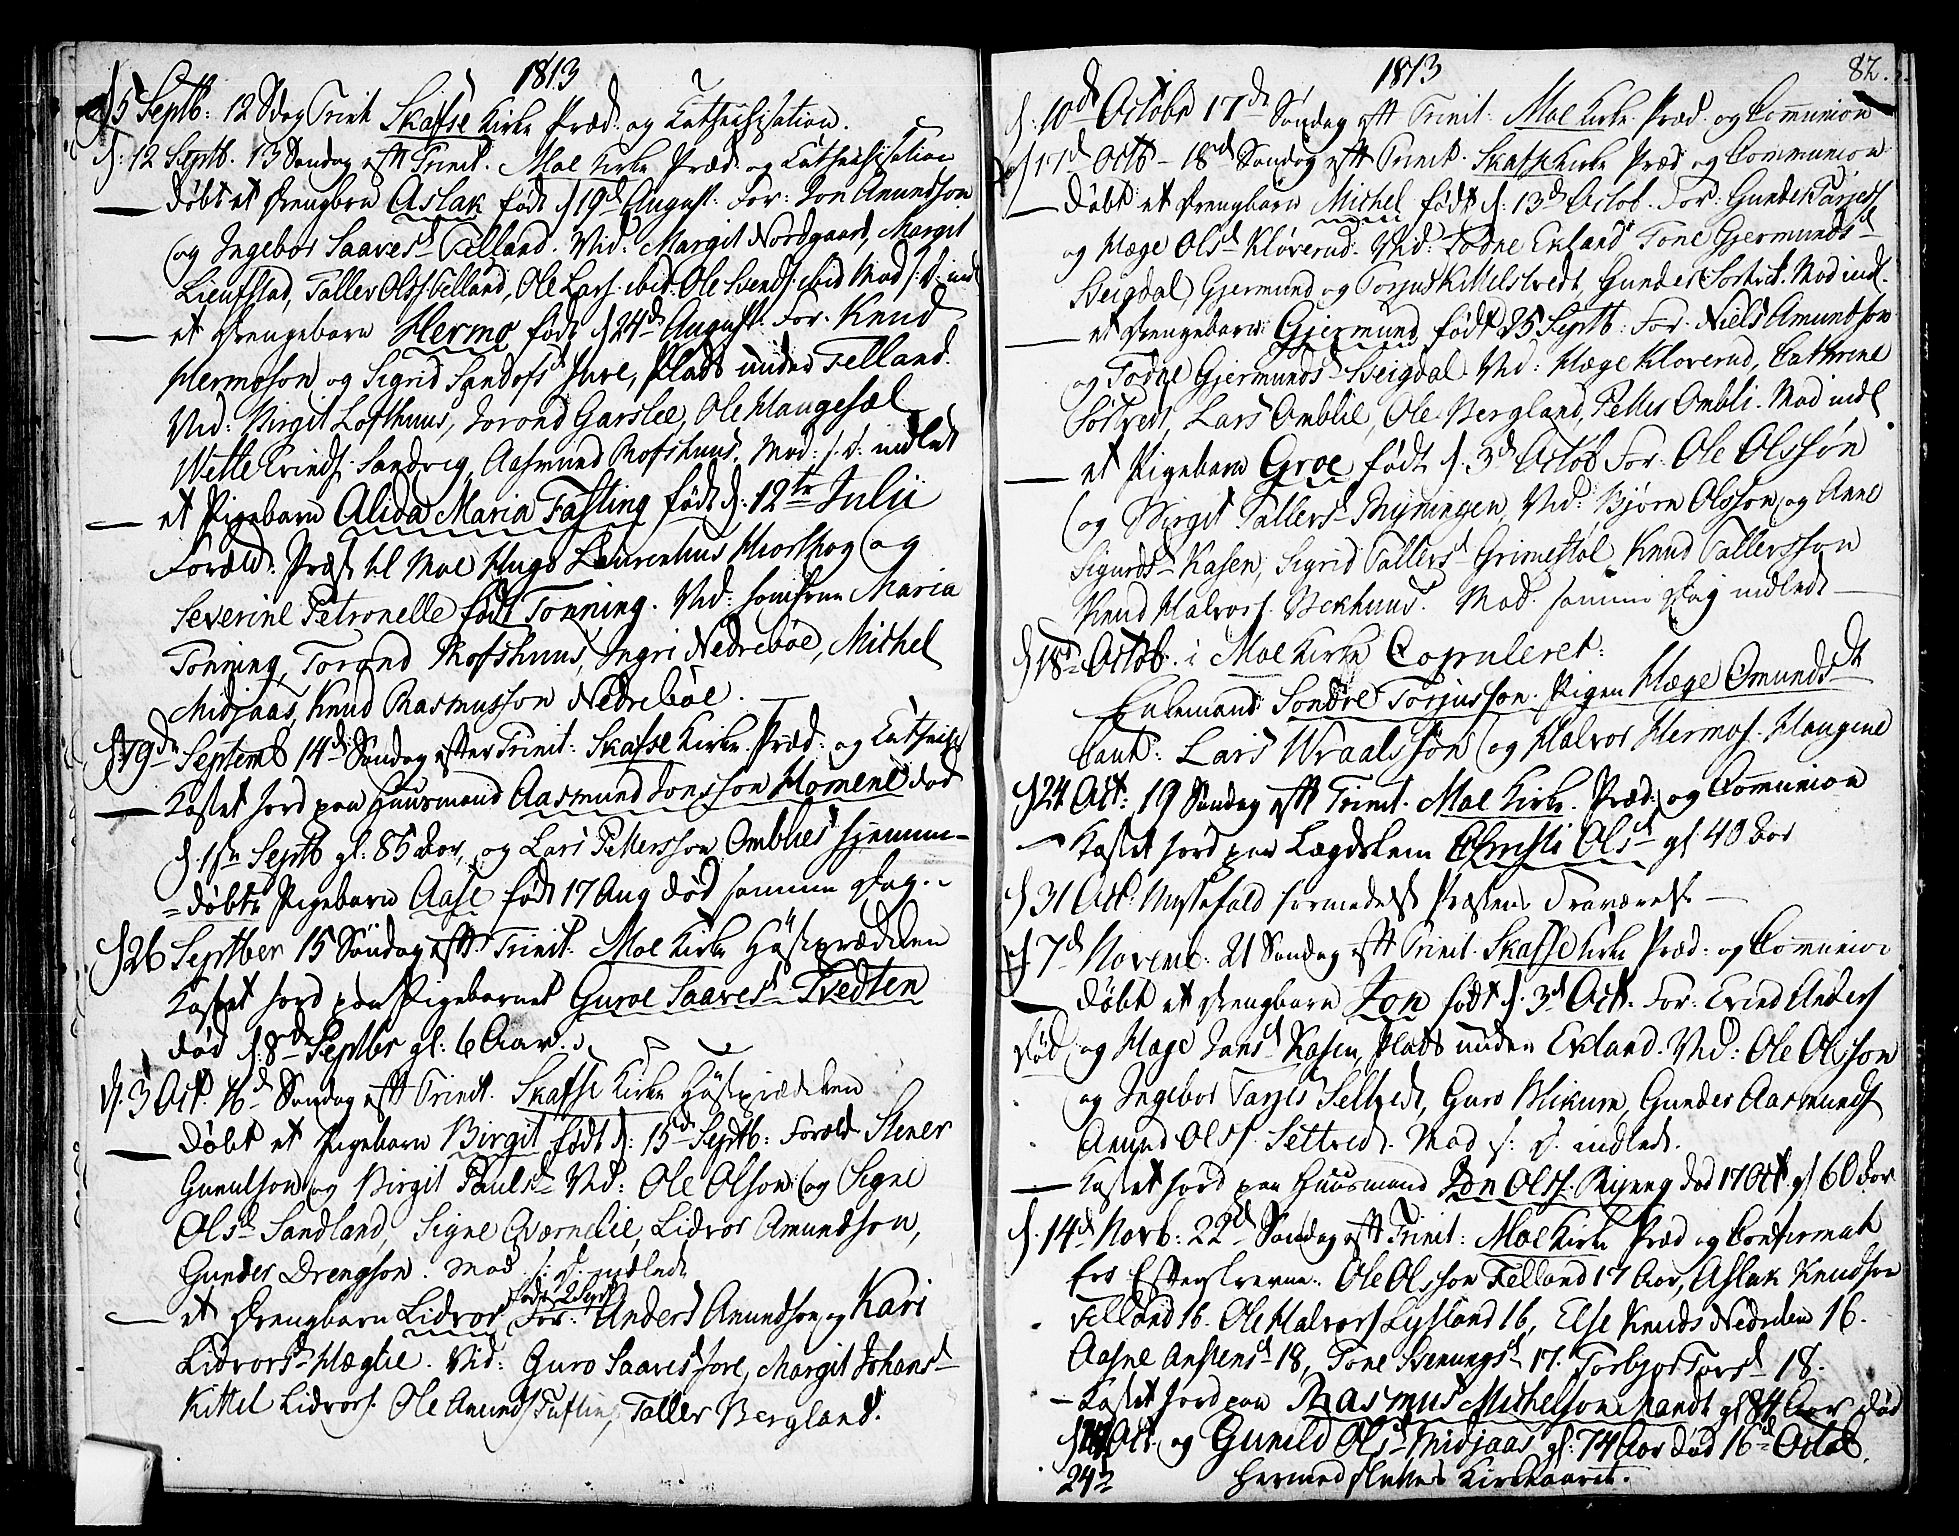 1813
d 5 Septb: 12 Sdag Trinit Skafse Kirke Præd: og Cathechisation.
d: 12 Septb. 13 Søndag eft Trinit. Moe Kirke Præd: og Cathechisation
Døbt et Drengbarn Aslak født d 19d August. For: Jon Amundson
og Ingebor Saavesd Felland. Vid: Margit Nordgaard, Margit
Lieufstad, Taller Olss Felland, Ole Lars. ibid. Ole Svends. ibid Mod s: D: indl
et Drengebarn Hermo født d 24de August. For. Knud
Hermoson og Sigrid Sandofsd Jure, Plads under Felland.
Vid: Birgit Lofthuus, Jorond Garslie, Ole Haugesæl
Wetle Evinds. Sandvig, Aasmund Rofshuus. Mod: s. D: indledt
et Pigebarn Alida Maria Fasting født d: 12te Julii
Foræld. Præst til Moe Hugo Laurentius Hiorthog og
Severine Petronelle født Tonning. Vid: Jomfrue Maria
Tonning, Torond Rofshuus, Ingri Nedrebøe, Michel
Midjaas, Knud Rasmusson Nedrebøe.
d 19de Septemb 14de Søndag efter Trinit: Skafse Kirke. Præd: og Cathechis
Kastet Jord paa Huusmand Aasmund Jonsson Momene død
d. 1ste Septb gl: 85 Aar, og Lars Pettersson Omblies hjemme-
=døbte Pigebarn Aase født 17 Aug død samme Dag.
d 26 Septber 15 Søndag eft Trinit. Moe Kirke Høstprædiken
Kastet Jord paa Pigebarnet Guroe Saavesd Tvedten
død d: 8de Septbr gl: 6 Aar.
d. 3 Oct. 16d Søndag eft Trinit. Skafse Kirke Høstprædiken
Døbt et Pigebarn Birgit født d: 15d Septb: Foræld. Stener
Gunulson og Birgit Paulsd Vid: Ole Olson og Signe
Olsd Sandland, Signe Qværnelie, Lidvor Amundson,
Gunder Drengson. Mod s: D. indledt
et Drengbarn Lidvor født 2 Sept For: Anders Amundson og Kari
Lidvorsd Hæglie. Vid: Guro Saavesd Jore, Margit Johansd
Kittil Lidvors. Ole Amunds Tuftin, Taller Bergland.
1813
82.
d. 10de Octobr 17de Søndag eft Trinit. Moe Kirke Præd. og Communion
d 17d Octb - 18d Søndag eft Trinit. Skafse Kirke Præd og Communion
Døbt et Drengbarn Michel født d. 13d Octob. For: Gunder Tarjess
og Hæge Olsd Kløverud. Vid: Todne Ekland Tone Gjermundsd
Sveigdal, Gjermund og Torjus Kittelstvedt, Gunder Sortvet. Mod indl.
et Drengebarn Gjermund født 25 Septb: For. Niels Amundson
og Todne Gjermundsd Sveigdal. Vid: Hæge Kløverud, Cathrine
Sortvedt, Lars Omblie, Ole Bergland, Petter Ombli. Mod indl
et Pigebarn Groe født d. 3d Octob For. Ole Olssøn
og Birgit Tallersd Rynningen, Vid: Bjørn Olsson og Anne
Sigurdsd Kasen, Sigrid Tallersd Grimestøl, Knud Tallersson
Knud Halvors. Bekhuus. Mod. samme Dag indledt
d 18d Octob. i Moe Kirke Copuleret:
Enkemand Sondre Torjusson. Pigen Hæge Omundsdt
Caut: Lars Wraalsson og Halvor Hermos. Haugene
d 24 Oct: 19 Søndag eft Trinit. Moe Kirke. Præd. og Communion
Kastet Jord paa Lægdslem Christi Olsd gl 40 Aar
d 31 Oct. Messefald formedelst Præstens Fraværelse
d 7d Novemb: 21 Søndag eft Trinit. Skafse Kirke Præd: og Communion
Døbt et Drengbarn Jon født d. 3d Oct. For: Evind Anders
død og Hæge Jansd Kasen Plads under Ekland. Vid: Ole Olsson
og Ingebor Tarjes Seltvedt, Guro Blikum, Gunder Aasmunds
Amund Olss. Settvedt. Mod s: D. indledt.
Kastet Jord paa Huusmand Jon Olss. Ryneng død 17 Oct gl 60 Aar
d. 14d Novb: 22d Søndag eft Trinit: Moe Kirke Præd og Confirmati
for Efterskrevne: Ole Olsson Felland 17 Aar, Aslak Knudson
Felland 16. Ole Halvors Lysland 16, Else Knuds Nedreboe 16.
Aasne Anstensd 18, Tone Svenungsd 17. Torbjor Torsd 18.
Kastet Jord paa Rasmus Michelson Mandt gl 84 Aar død
Oct. og Gunild Olsd Midjaas gl: 74 Aar død 16d Octob.
24de
Hermed sluttes Kirkeaaret.